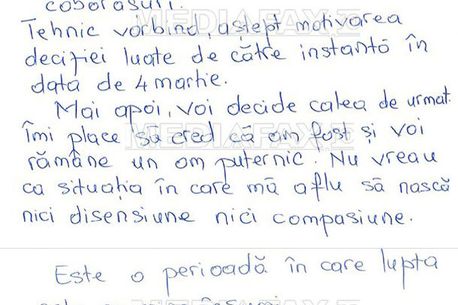 coborâsuri.
Tehnic vorbind, aștept motivarea
deciziei luate de către instanță în
data de 4 martie.
Mai apoi, voi decide calea de urmat.
Îmi place să cred că am fost și voi
rămâne un om puternic. Nu vreau
ca situația în care mă aflu să nască
nici disensiune nici compasiune.
Este o perioadă în care lupta